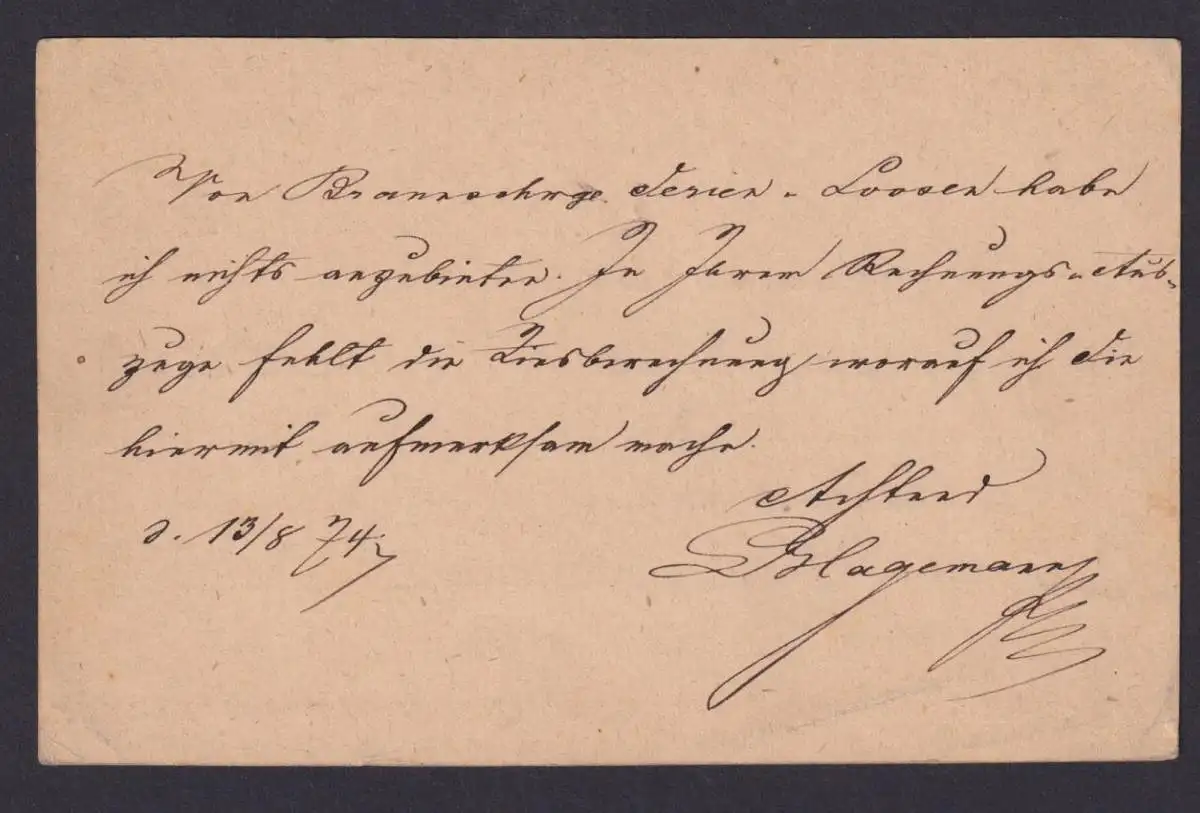 Von Braunschwge. Serien-Loosen habe
ich nichts anzubieten. In Ihrem Rechnungs-Aus-
zuge fehlt die Zinsberechnung, worauf ich Sie
hiermit aufmerksam mache.
Achtend
Hagemann
d. 13/8 74.